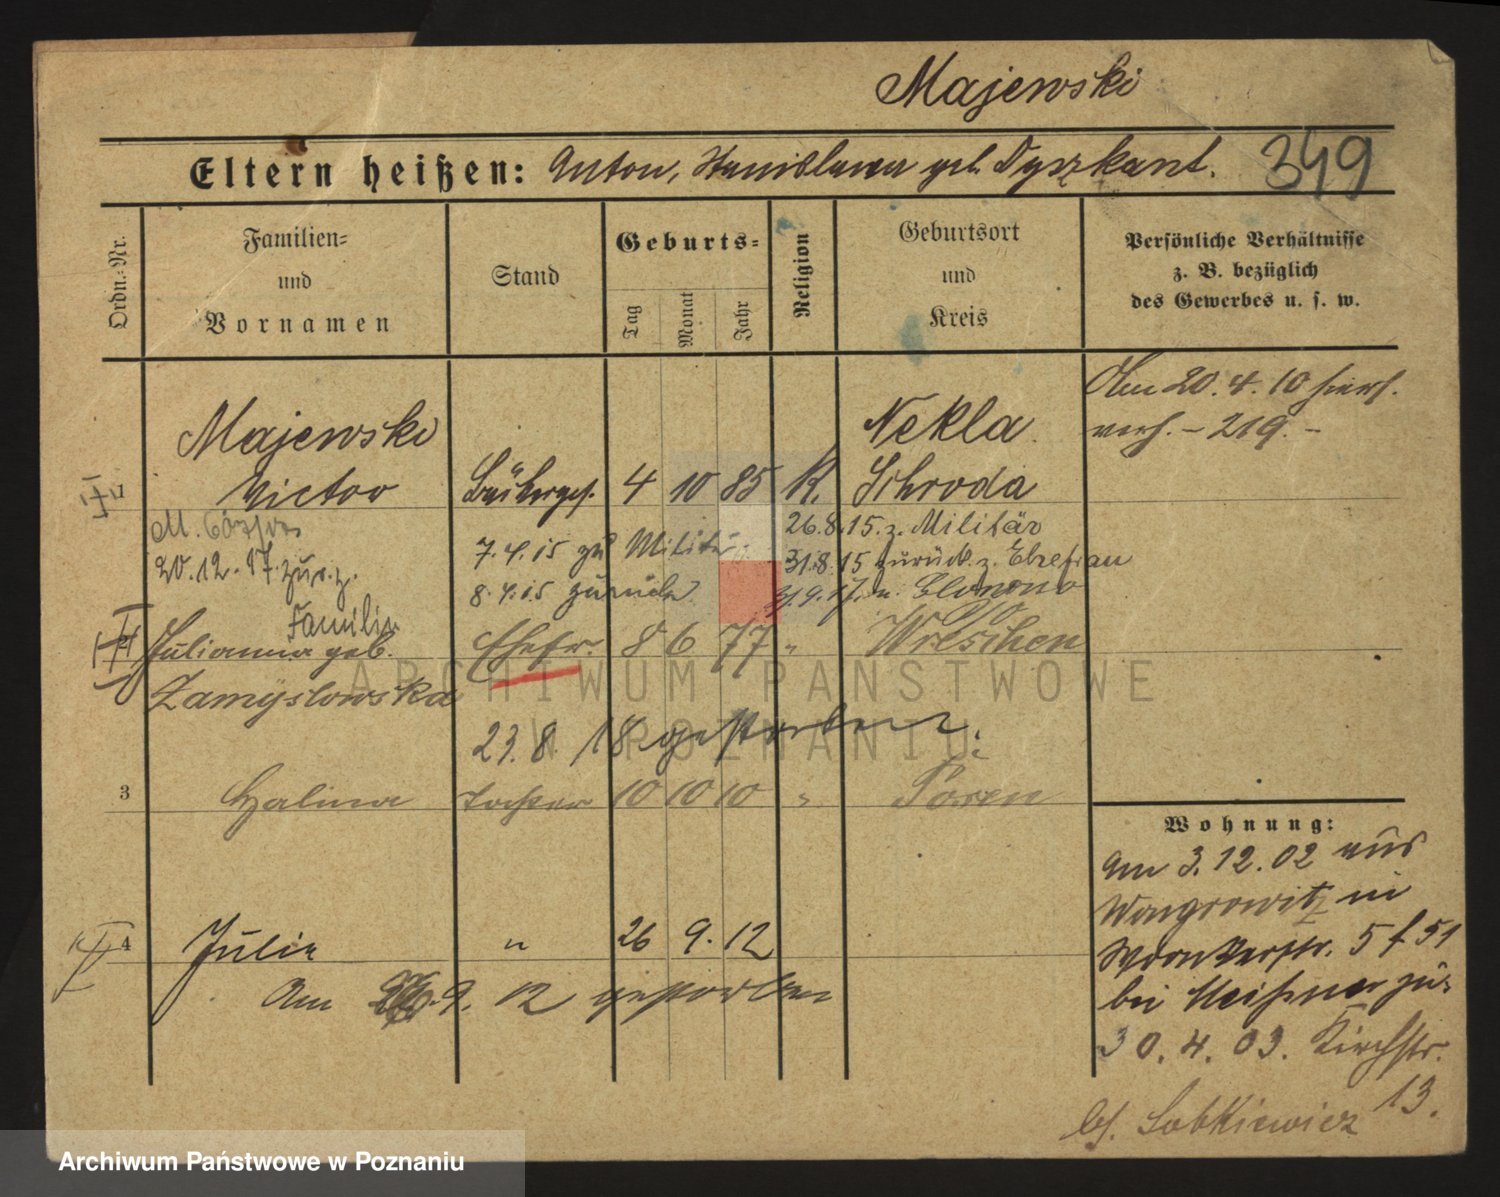 Majewski
Eltern heißen: Anton, Stanislawa geb. Dyszkant.
349
Ordn.-Nr.
Familien-
und
Vornamen
Stand
Geburts-
Tag
Monat
Jahr
Religion
Geburtsort
und
Kreis
Persönliche Verhältnisse
z. B. bezüglich
des Gewerbes u. s. w.
Am 20.4.10 hiers.
verh. – 219. –
Majewski Nekla.
Victor 4 10 85 K. Schroda
M.
20.12.17. zur. z.
Familie
7.4.15 zu Militär
8.4.15 zurück
26.8.15. z. Militär
31.8.15 zurück z. Ehefrau
Julianna geb. Ehefr. 8 6 77 " Wreschen
Zamÿslowska
23.8 18 gestorben.
3 Halina Tochter 10 10 10 " Posen
4 Julie " 26 9. 12
Am 9. 12 gestorben
Wohnung:
Am 3.12.02 aus
Wongrowitz in
Wronkerstr. 5 f 51
bei Meißner zu.
30.4.03. Kirchstr.
13.
bf. Sobkiewicz
ARCHIWUM PAŃSTWOWE
W POZNANIU
Archiwum Państwowe w Poznaniu